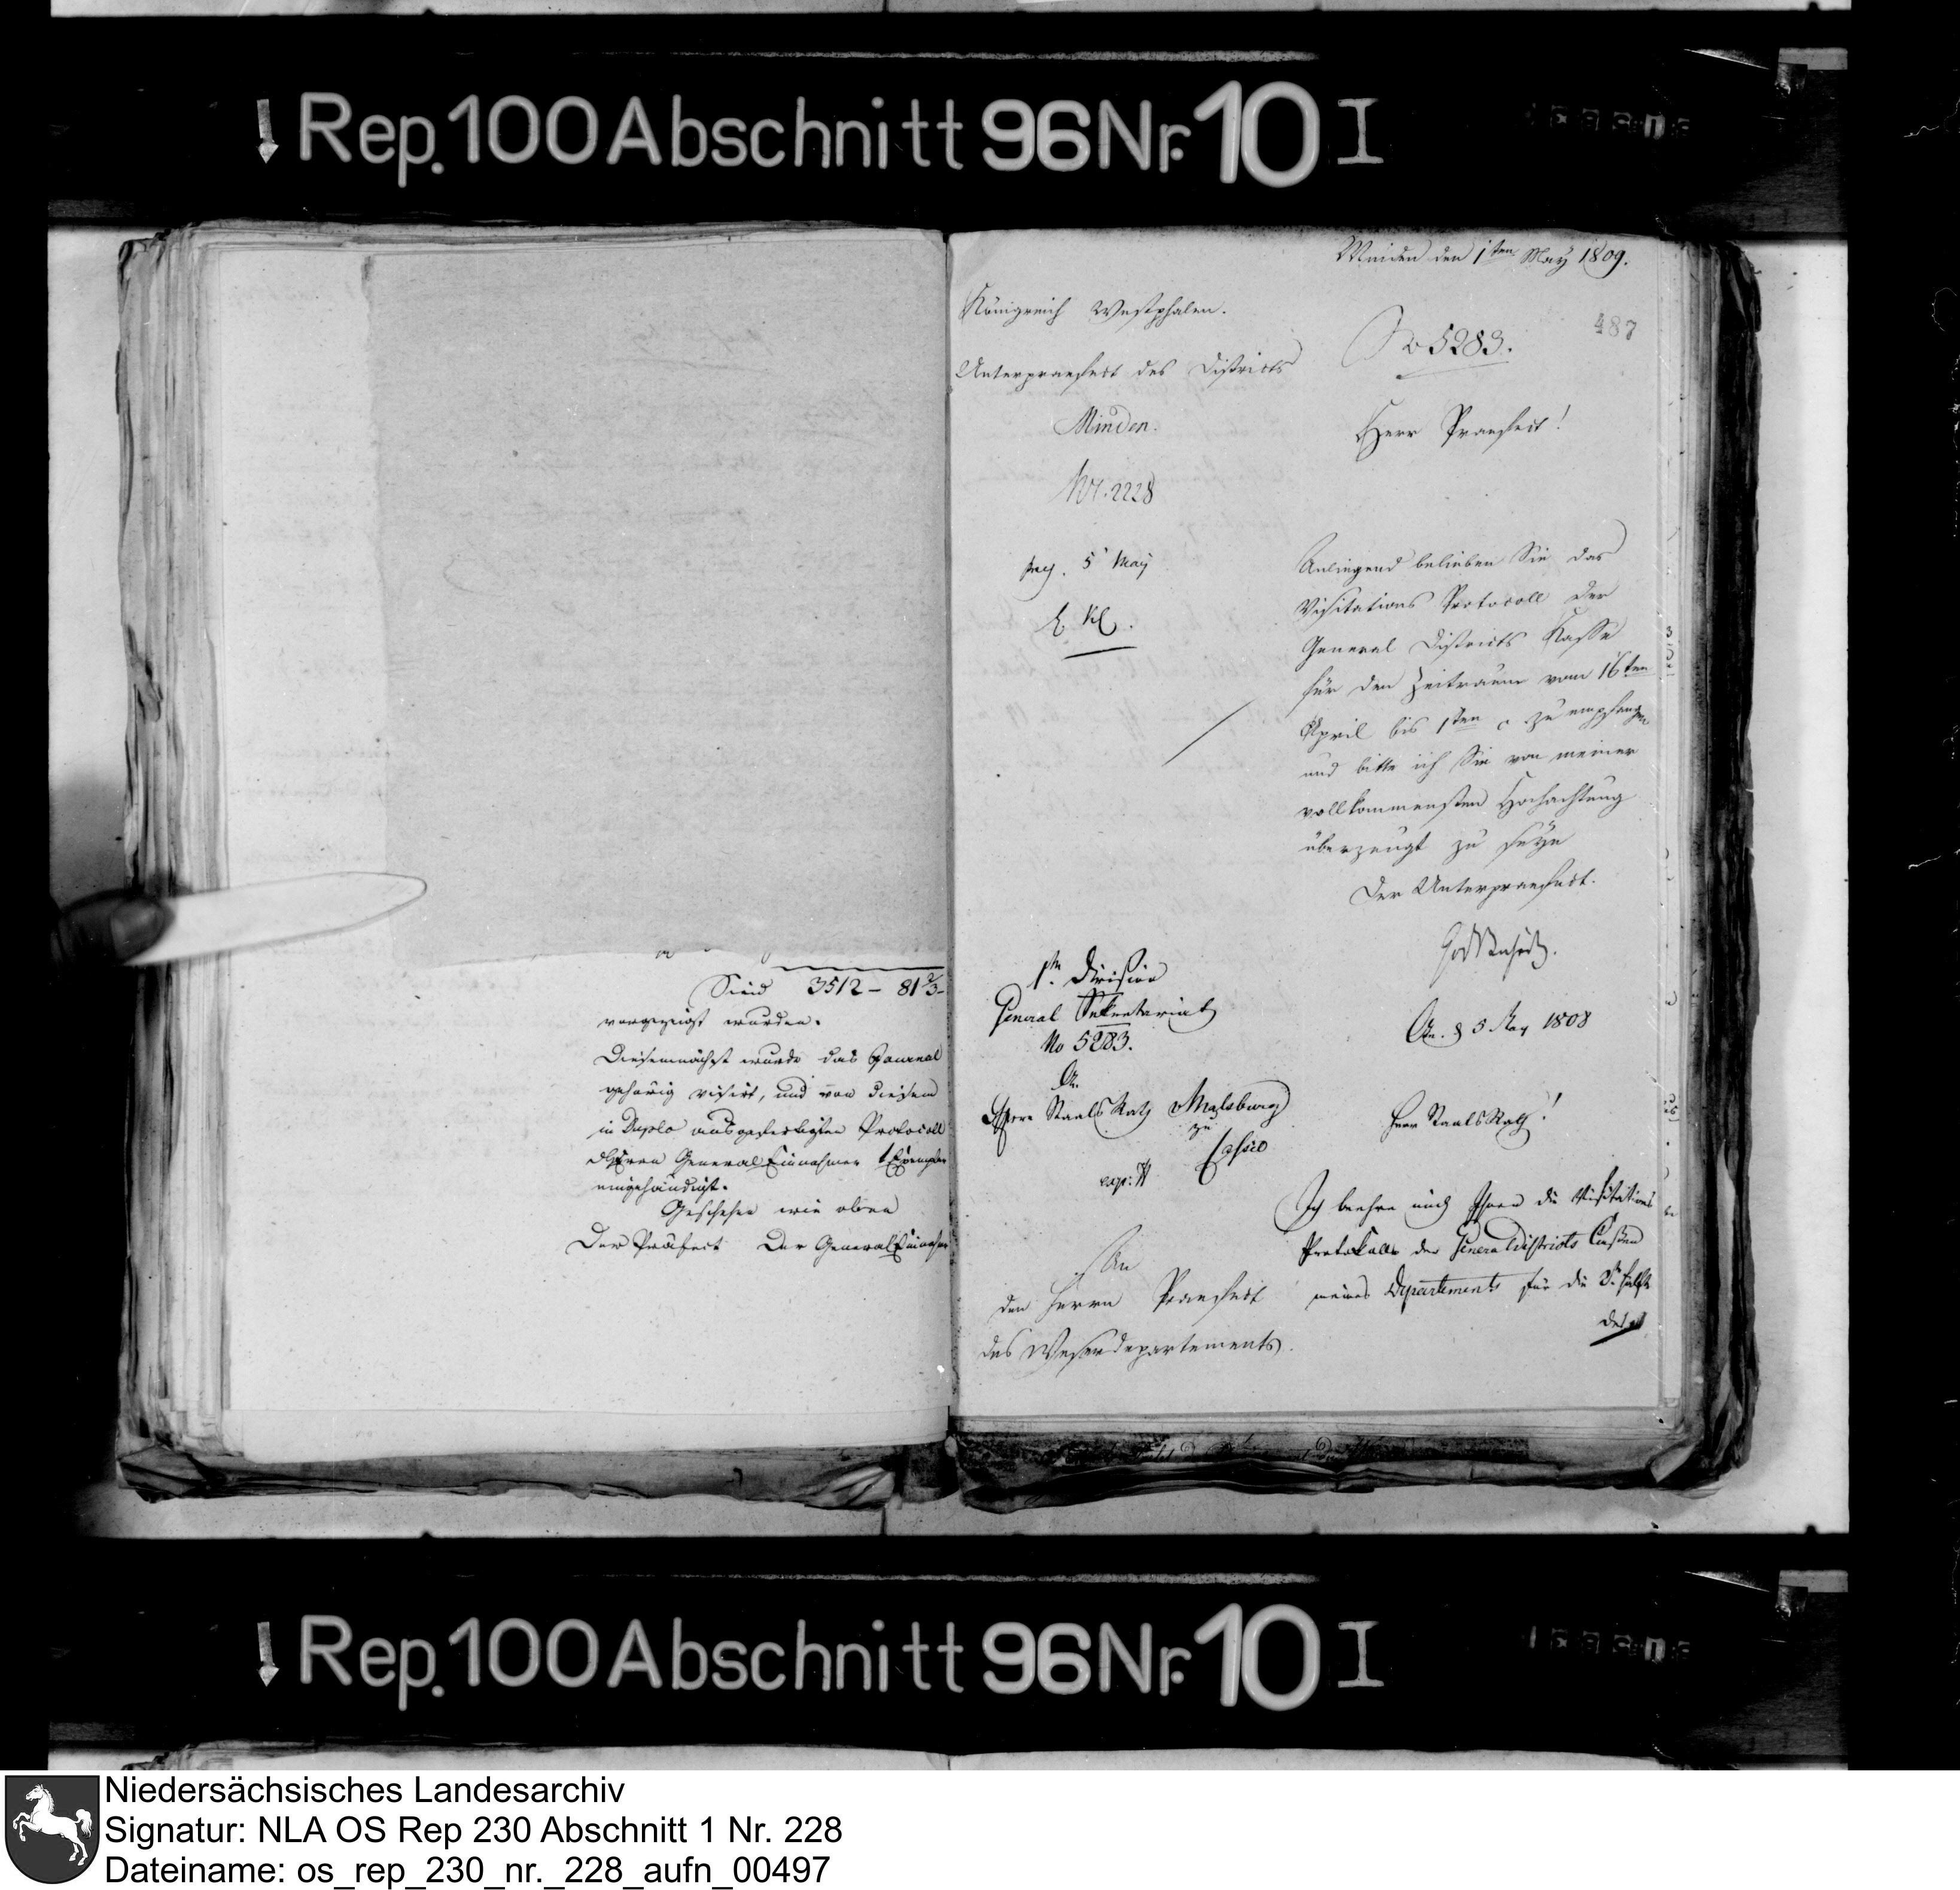 Rep. 100 Abschnitt 96 Nr. 10 I
Sind 3512 – 81 2/3 –
vorgezeigt wurden.
Diesemnächst wurde das Journal
gehörig visirt, und von diesem
in Duplo ausgefertigten Protocoll
General Einnehmer 1 Exemplar
eingehändigt.
Geschehen wie oben
Der Präfect Der General Einnehmer
Minden den 1ten May 1809.
487
Königreich Westphalen.
No 5283.
Unterpraefect des Districts
Minden.
Nr. 2228
Herr Praefect!
5 May
Anliegend belieben Sie das
Visitations Protocoll der
General Districts Kasse
für den Zeitraum vom 16ten
April bis 1ten c zu empfangen
und bitte ich Sie von meiner
vollkommensten Hochachtung
überzeugt zu seyn
Der Unterpraefect.
1te Division
General Sekretariat
No 5283.
An
Herrn Staats Rath v Malsburg
zu
Cassel
exp.
An
den Herrn Praefect
des Weserdepartements.
5 May 1808
Herr Staats Rath!
Ich beehre mich Ihnen die Visitations
Protokolle der General Districts Cassen
meines Departements für die 2te Hälfte
des
Rep. 100 Abschnitt 96 Nr. 10 I
Niedersächsisches Landesarchiv
Signatur: NLA OS Rep 230 Abschnitt 1 Nr. 228
Dateiname: os_rep_230_nr._228_aufn_00497